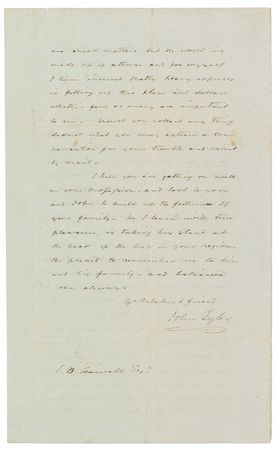 are small matters but the world is
made up of atoms and for myself
I have incurred pretty heavy expenses
in fitting up this place and dollars
whether few or many are important
to me. Should you collect any thing
deduct what you may esteem a com
pensation for your trouble and remit
by mail.
I hope you are getting on well
in your profession and look to you
and John to build up the fortunes of
your family. He I learn with true
pleasure is taking his stand at
the head of the bar in your region.
Be pleased to remember me to him
and his family and believe
me always
Yr Relation & friend
John Tyler
J. B. Esqr.